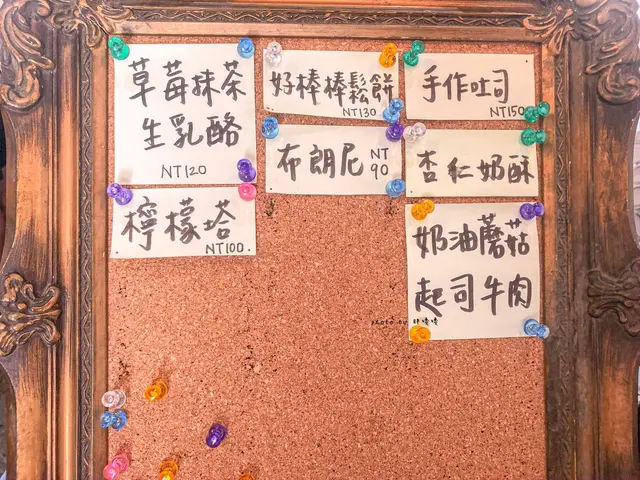 草莓抹茶
生乳酪
NT120
檸檬塔
NT100
好棒棒鬆餅
NT130
布朗尼 NT
90
手作吐司
NT150
杏仁奶酥
奶油蘑菇
起司牛肉
photo by